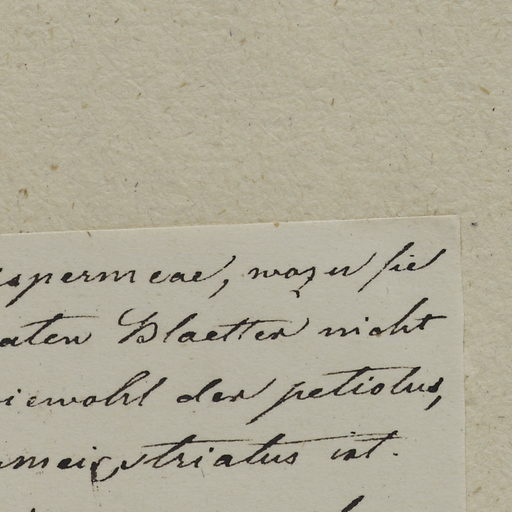 spermeae, wozu sie
aten Blaetter nicht
iewohl der petiolus,
striatus ist.